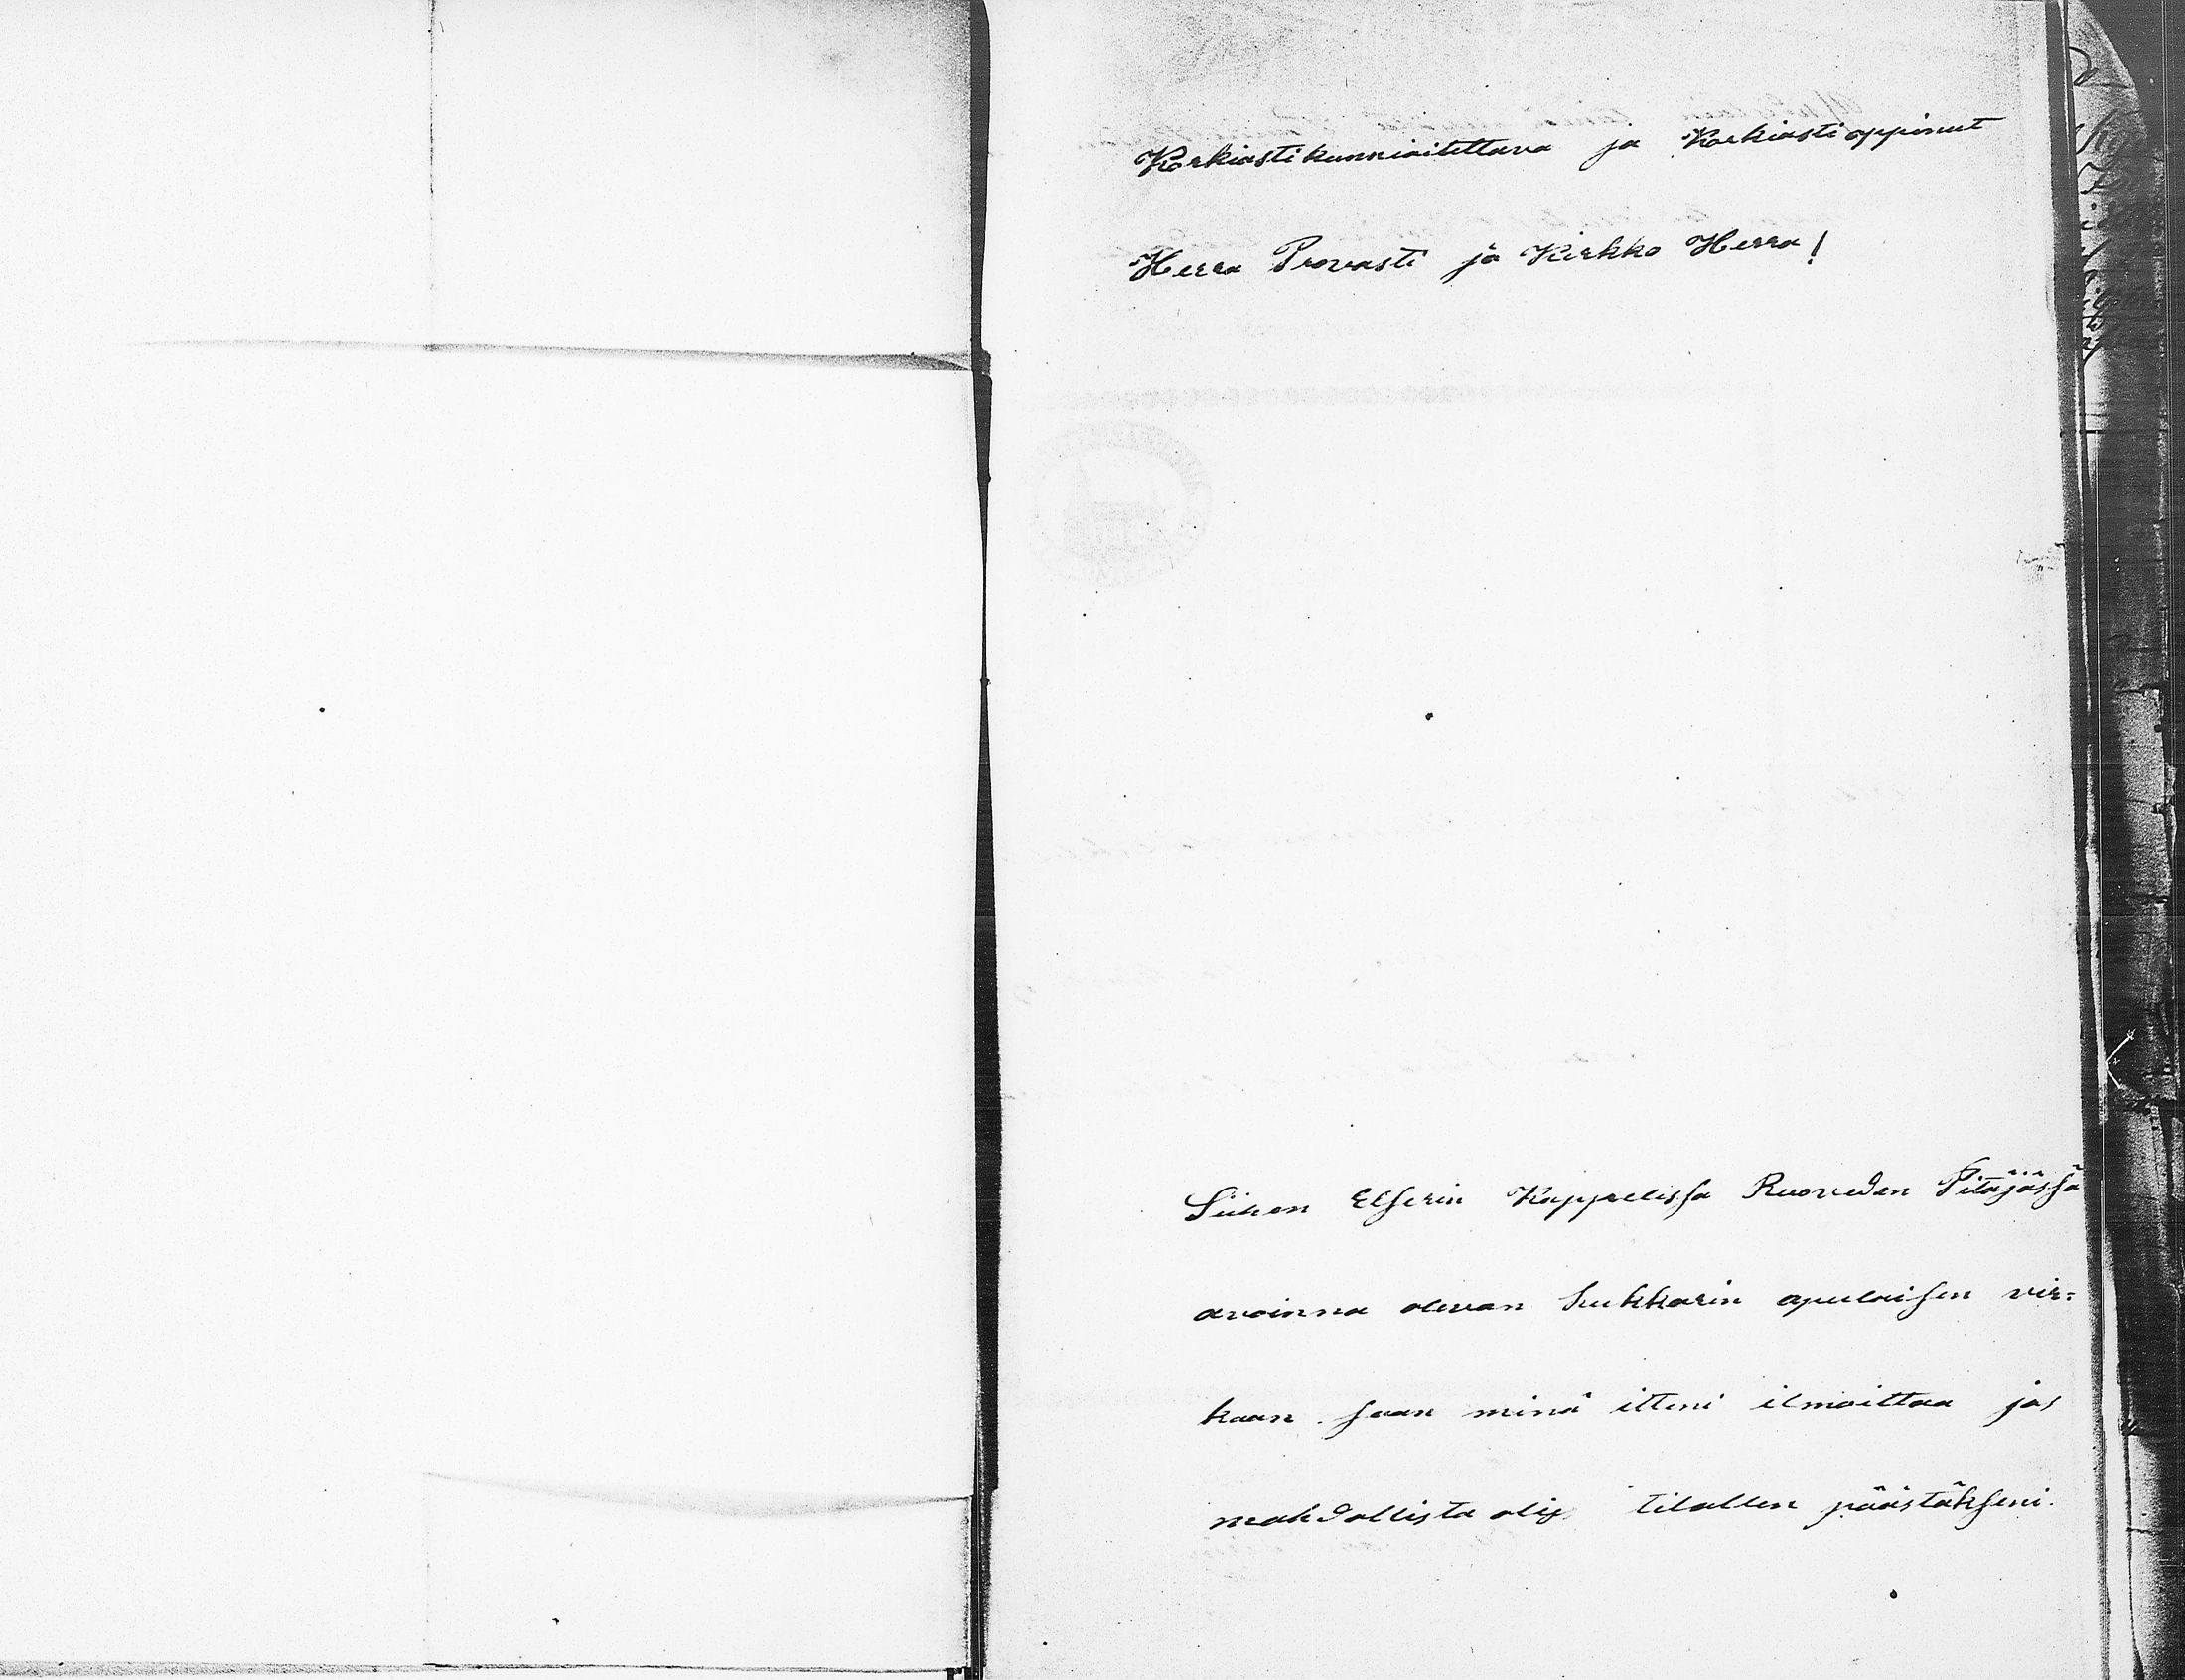 Korkiastikunnioitettava ja Korkiastioppinut
Herra Provasti ja Kirkko Herra!
Siihen Elserin Kappelissa Ruoveden Pitäjässä
avoinna olevan lukkarin apulaisen vir=
kaan saan minä itteni ilmoittaa jos
mahdollista olis tilallen päästäkseni.